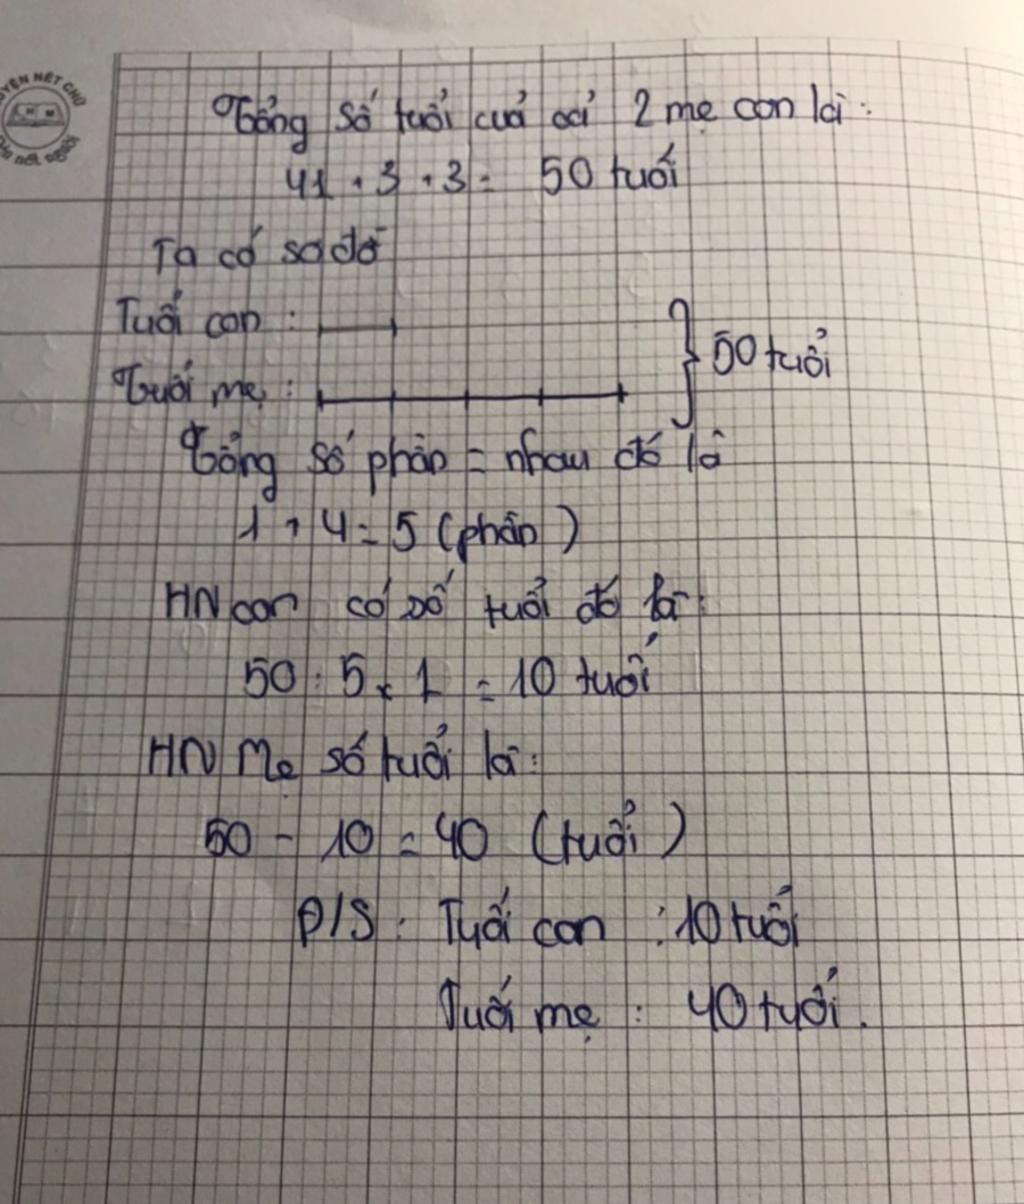 LUYỆN NẾT CHỮ
RÈN NẾT NGƯỜI
Tổng số tuổi của cả 2 mẹ con là:
41 + 3 + 3 = 50 tuổi
Ta có sơ đồ
Tuổi con :
Tuổi mẹ :
50 tuổi
Tổng số phần = nhau đó là
1 + 4 = 5 (phần)
HN con có số tuổi đó là:
50 : 5 x 1 = 10 tuổi
HN Mẹ số tuổi là:
50 - 10 = 40 (tuổi)
Đ/S : Tuổi con : 10 tuổi
Tuổi mẹ : 40 tuổi.